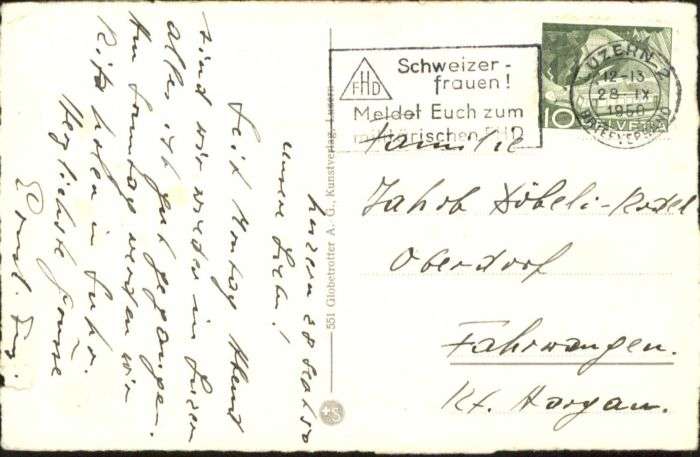 Luzern 28 Sept 50
Unsere Lieben!
Seit Montag Abend
sind wir wieder in Luzern
alles ist gut gegangen.
Am Sonntag werden wir
Rita holen in Suhr.
Herzlichste Grüsse
551 Globetrotter A. G., Kunstverlag, Luzern
+S
FHD
Schweizer-
frauen!
Meldet Euch zum
militärischen FHD
LUZERN 2
12-13
28 IX
1950
BRIEFVERSAND
10 HELVETIA
Familie
Jakob Döbeli-Rodel
Oberdorf
Fahrwangen.
Kt. Aargau.